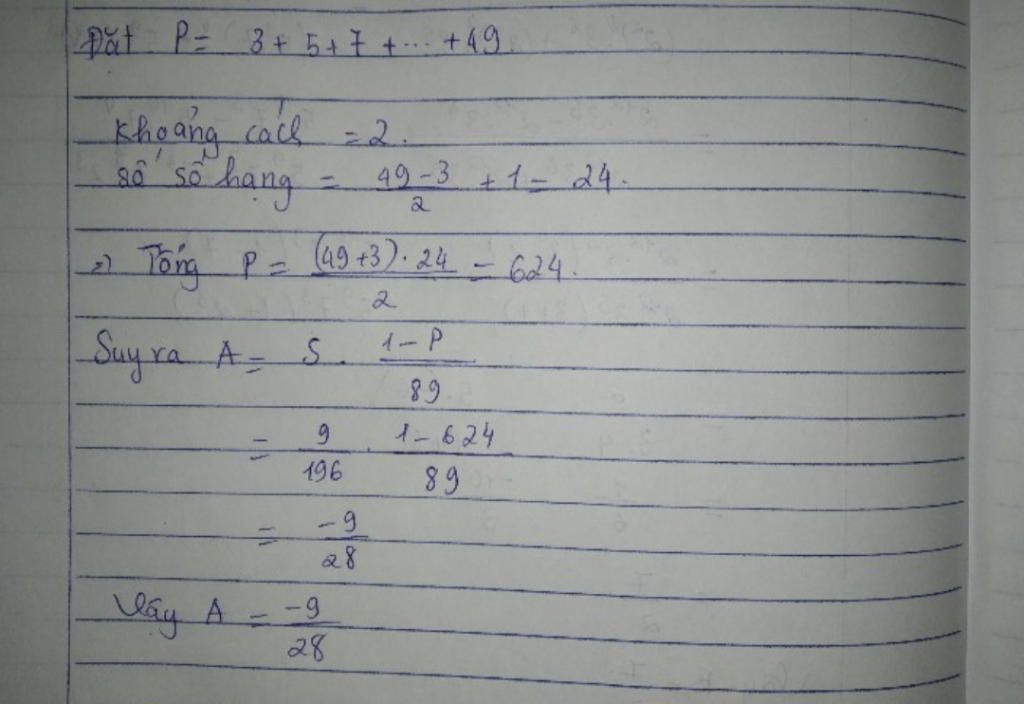 Đặt P = 3 + 5 + 7 + ... + 49.
Khoảng cách = 2.
Số số hạng = \frac{49-3}{2} + 1 = 24.
=> Tổng P = \frac{(49+3).24}{2} = 624.
Suy ra A = S . \frac{1-P}{89}
= \frac{9}{196} . \frac{1-624}{89}
= \frac{-9}{28}
Vậy A = \frac{-9}{28}